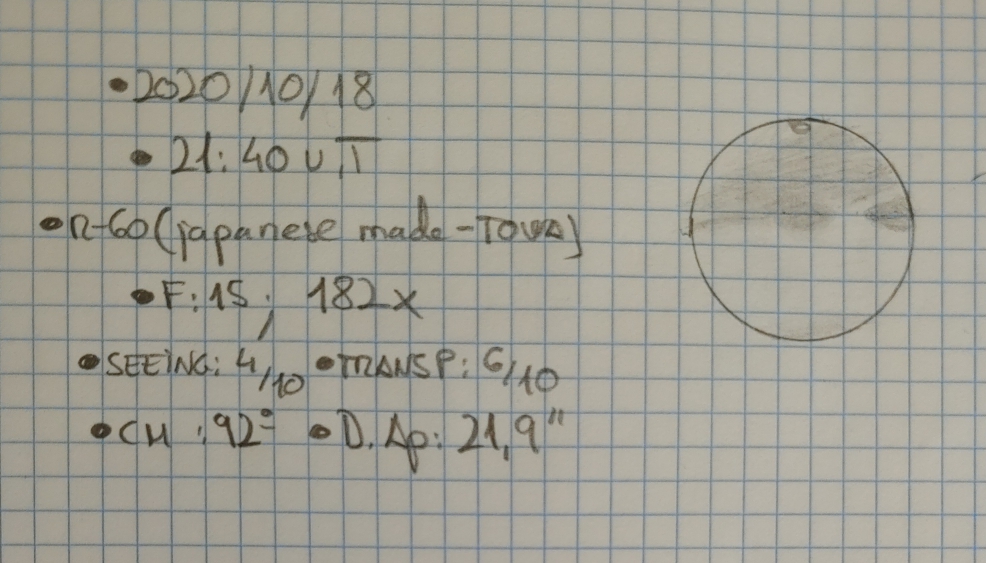 •2020/10/18
•21:40 UT
•R-60 (japanese made-TOWA)
•F:15; 182x
•SEEING: 4/10 •TRANSP: 6/10
•CM:92º •D.Ap: 21,9"